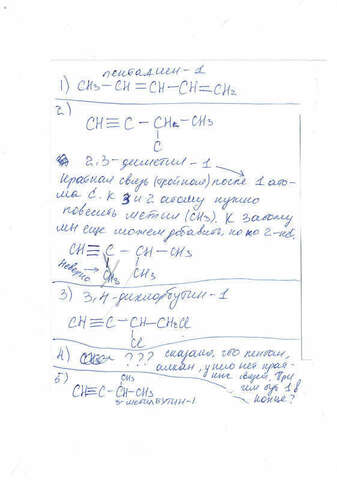 пентадиен-1
1) CH₃-CH=CH-CH=CH₂
2)
CH≡C-CH₂-CH₃
C
2,3-диметил-1
Кратная связь (тройная) после 1 ато-
ма C. К 3 и 2 атому нужно
повесить метил (CH₃). К 3 атому
мы еще можем добавить, но ко 2-нет.
CH≡C-CH-CH₃
Неверно CH₃ CH₃
3) 3,4-дихлорбутин-1
CH≡C-CH-CH₂Cl
Cl
4) ??? сказано, что пентан,
алкан, у него нет крат-
ных связей. При
чем тут 1 в
конце?
5)
CH₃
CH≡C-CH-CH₃
3-метилбутин-1